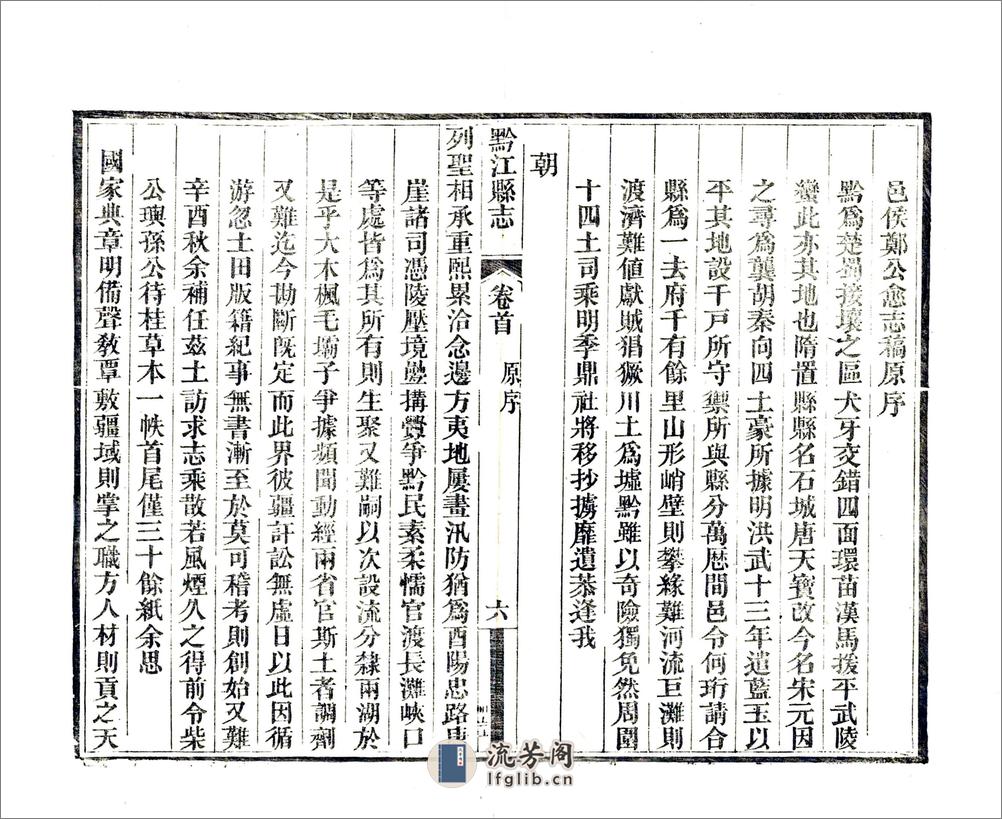 邑侯鄭公愈志稿原序
黔爲楚蜀接壤之區犬牙交錯四面環苗漢馬援平武陵
蠻此亦其地也隋置縣縣名石城唐天寶改今名宋元因
之尋爲龔胡秦向四土豪所據明洪武十三年遣藍玉以
平其地設千戸所守禦所與縣分萬歴間邑令何珩請合
縣爲一去府千有餘里山形峭壁則攀緣難河流巨灘則
渡濟難値獻賊猖獗川土爲墟黔雖以奇險獨免然周圍
十四土司乘明季鼎社將移抄擄靡遺恭逢我
朝
黔江縣志
卷首
原序
六
列聖相承重熙累洽念邊方夷地屢畫汛防猶爲酉陽忠路唐
崖諸司憑陵壓境疊搆釁爭黔民素柔懦官渡長灘峽口
等處皆爲其所有則生聚又難嗣以次設流分隸兩湖於
是乎大木楓毛壩子爭據頻聞動經兩省官斯土者調劑
又難迄今勘斷旣定而此界彼疆訐訟無虛日以此因循
游忽土田版籍紀事無書漸至於莫可稽考則創始又難
辛酉秋余補任茲土訪求志乘散若風煙久之得前令柴
公璵孫公待桂草本一帙首尾僅三十餘紙余思
國家典章明備聲敎覃敷疆域則掌之職方人材則貢之天
流芳阁
lfglib.cn